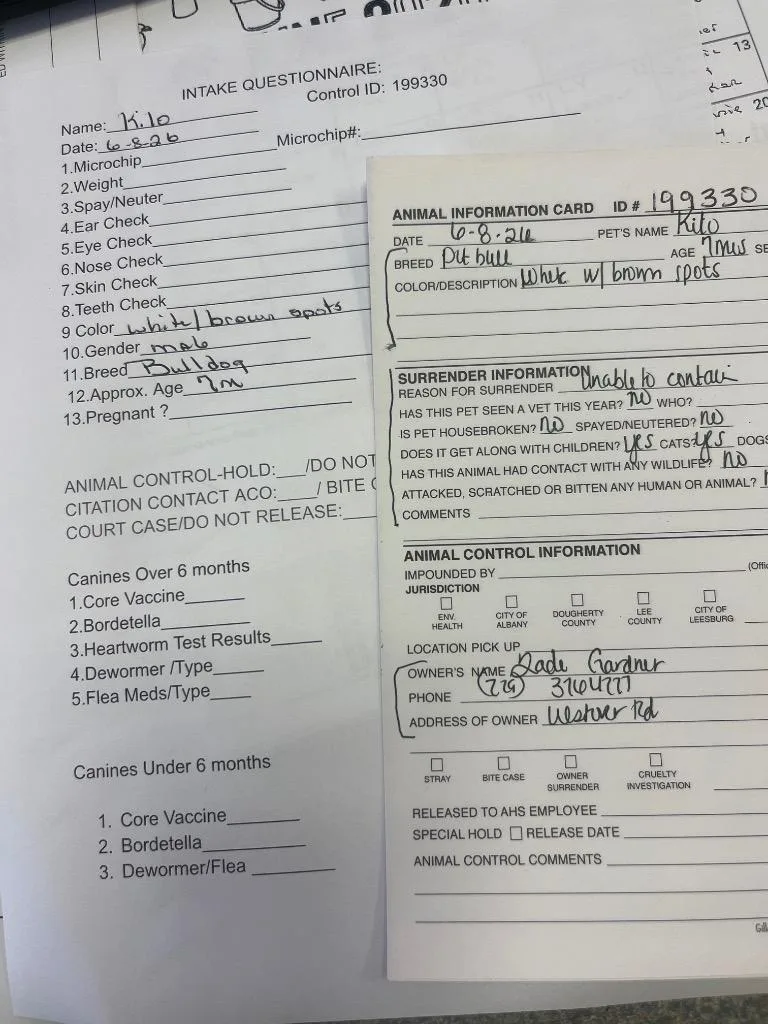 INTAKE QUESTIONNAIRE:
Control ID: 199330
Name: Kilo
Date: 6-8-26 Microchip#:
1.Microchip
2.Weight
3.Spay/Neuter
4.Ear Check
5.Eye Check
6.Nose Check
7.Skin Check
8.Teeth Check
9 Color white/brown spots
10.Gender male
11.Breed Bulldog
12.Approx. Age 7m
13.Pregnant ?
ANIMAL CONTROL-HOLD: /DO NOT
CITATION CONTACT ACO: / BITE
COURT CASE/DO NOT RELEASE:
Canines Over 6 months
1.Core Vaccine
2.Bordetella
3.Heartworm Test Results
4.Dewormer /Type
5.Flea Meds/Type
Canines Under 6 months
1. Core Vaccine
2. Bordetella
3. Dewormer/Flea
ANIMAL INFORMATION CARD ID # 199330
DATE 6-8-26 PET'S NAME Kilo
BREED Pit bull AGE 7mos SE
COLOR/DESCRIPTION White w/ brown spots
SURRENDER INFORMATION
REASON FOR SURRENDER Unable to contain
HAS THIS PET SEEN A VET THIS YEAR? no WHO?
IS PET HOUSEBROKEN? no SPAYED/NEUTERED? no
DOES IT GET ALONG WITH CHILDREN? yes CATS? yes DOGS
HAS THIS ANIMAL HAD CONTACT WITH ANY WILDLIFE? no
ATTACKED, SCRATCHED OR BITTEN ANY HUMAN OR ANIMAL?
COMMENTS
ANIMAL CONTROL INFORMATION
IMPOUNDED BY (Offic
JURISDICTION
ENV. HEALTH CITY OF ALBANY DOUGHERTY COUNTY LEE COUNTY CITY OF LEESBURG
LOCATION PICK UP
OWNER'S NAME Gardner
PHONE (229)
ADDRESS OF OWNER Westover Rd
STRAY BITE CASE OWNER SURRENDER CRUELTY INVESTIGATION
RELEASED TO AHS EMPLOYEE
SPECIAL HOLD RELEASE DATE
ANIMAL CONTROL COMMENTS